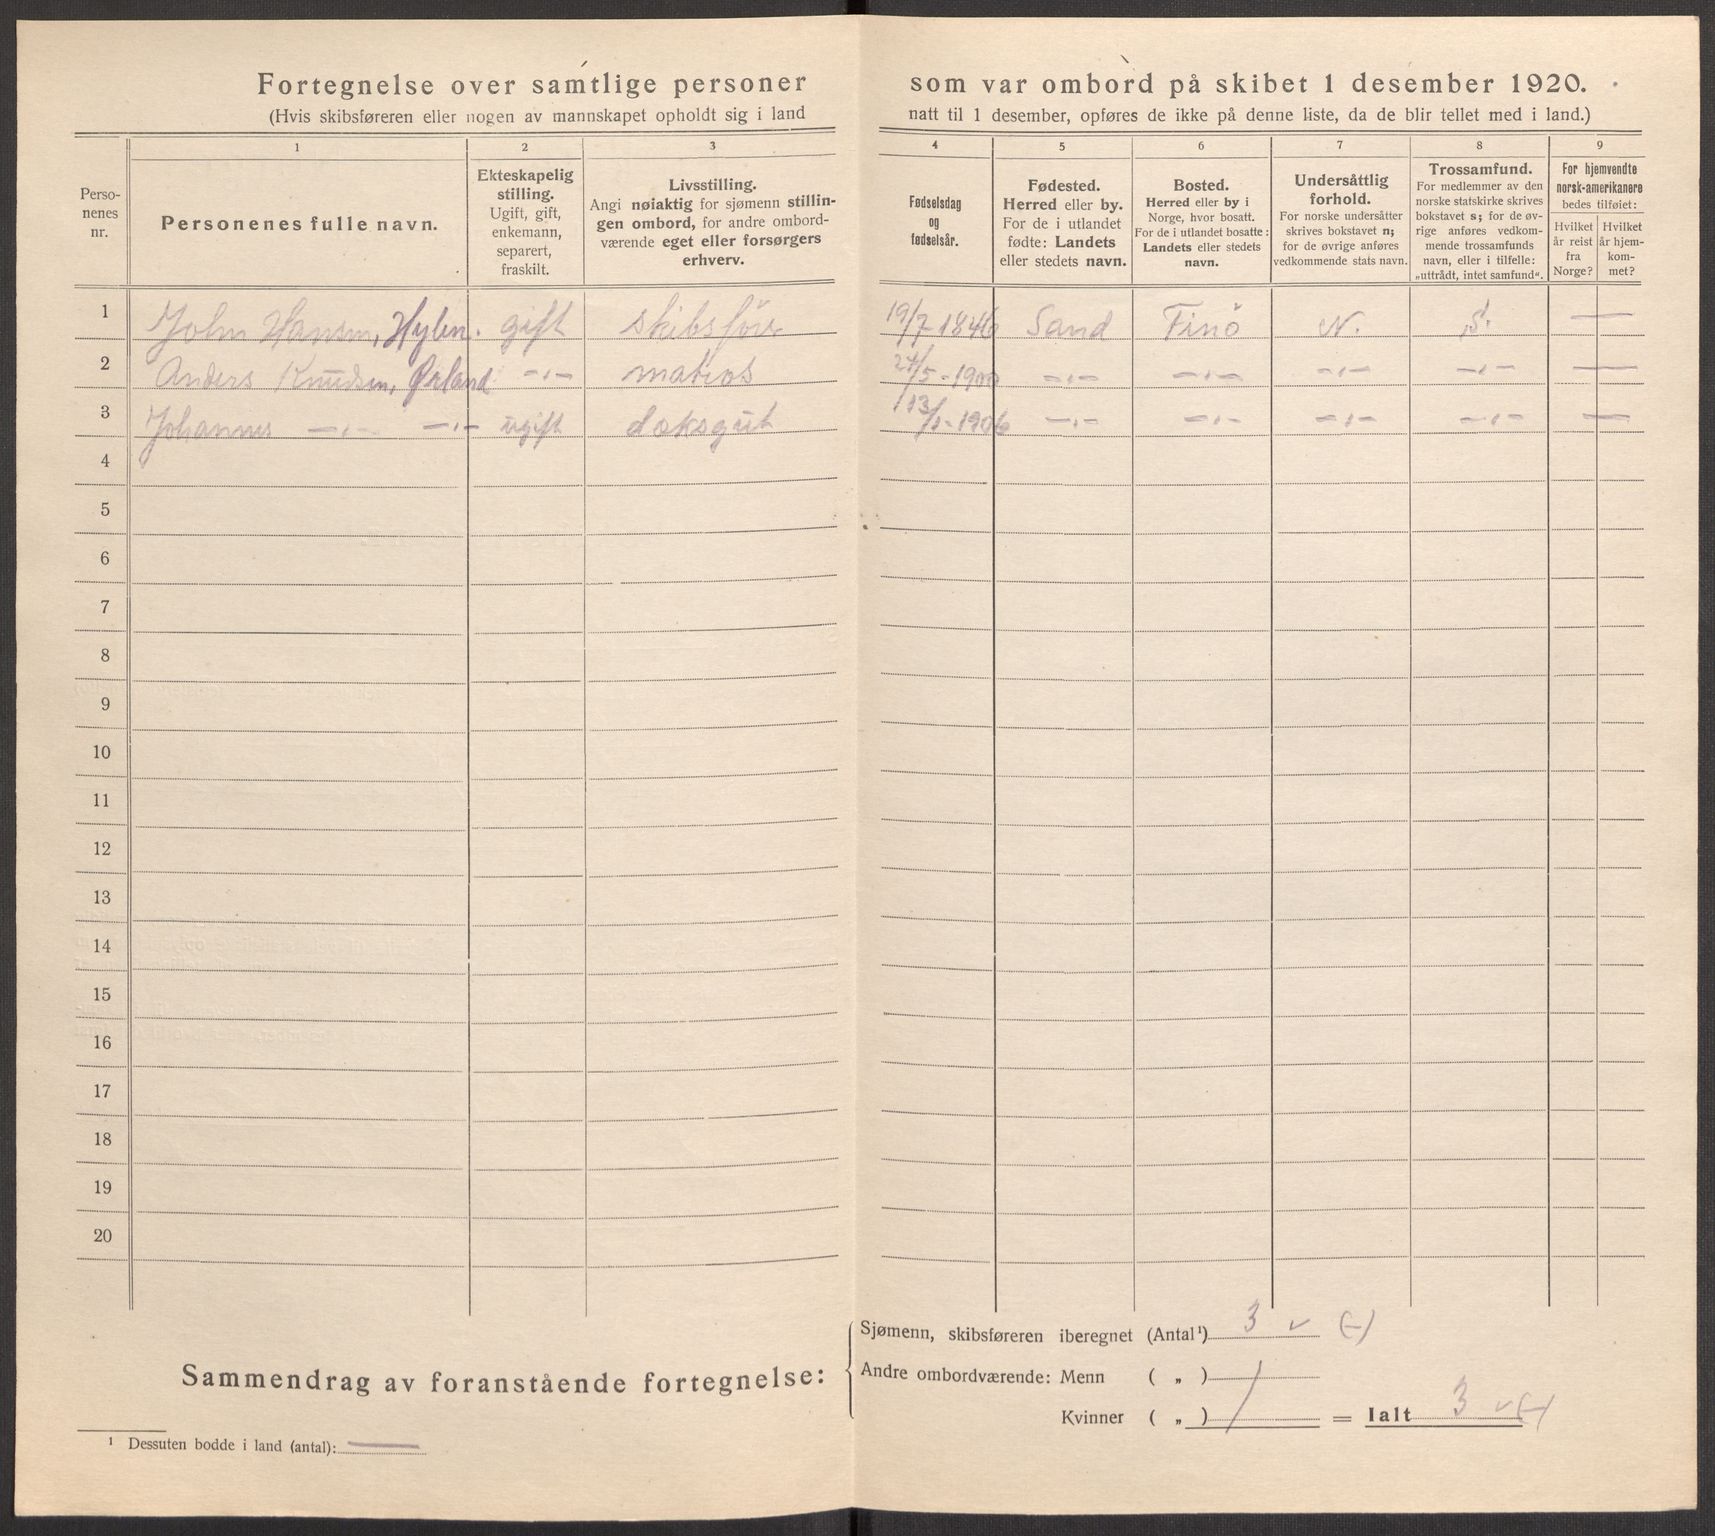 Fortegnelse over samtlige personer som var ombord på skibet 1 desember 1920.
(Hvis skibsføreren eller nogen av mannskapet opholdt sig i land natt til 1 desember, opføres de ikke på denne liste, da de blir tellet med i land.)
Perso-
nenes
nr.
1
Personenes fulle navn.
2
Ekteskapelig
stilling.
Ugift, gift,
enkemann,
separert,
fraskilt.
3
Livsstilling.
Angi nøiaktig for sjømenn stillin-
gen ombord, for andre ombord-
værende eget eller forsørgers
erhverv.
4
Fødselsdag
og
fødselsår.
5
Fødested.
Herred eller by.
For de i utlandet
fødte: Landets
eller stedets navn.
6
Bosted.
Herred eller by i
Norge, hvor bosatt.
For de i utlandet bosatte:
Landets eller stedets
navn.
7
Undersåttlig
forhold.
For norske undersåtter
skrives bokstavet n;
for de øvrige anføres
vedkommende stats navn.
8
Trossamfund.
For medlemmer av den
norske statskirke skrives
bokstavet s; for de øv-
rige anføres vedkom-
mende trossamfunds
navn, eller i tilfelle:
„uttrådt, intet samfund“.
9
For hjemvendte
norsk-amerikanere
bedes tilføiet:
Hvilket
år reist
fra
Norge?
Hvilket
år hjem-
kom-
met?
1 John Hansen, Hylen. gift skibsför 19/7 1846 Sand Finö N. S. —
2 Anders Knudsen, Ørland -"- matros 24/5-1900 -"- -"- -"- -"- —
3 Johannes -"- -"- ugift daksgut 13/1-1906 -"- -"- -"- -"- —
4
5
6
7
8
9
10
11
12
13
14
15
16
17
18
19
20
Sammendrag av foranstående fortegnelse:
Sjømenn, skibsføreren iberegnet (Antal¹) 3 v (-)
Andre ombordværende: Menn ( „ )
Kvinner ( „ ) / = Ialt 3 v (-)
¹ Dessuten bodde i land (antal): —